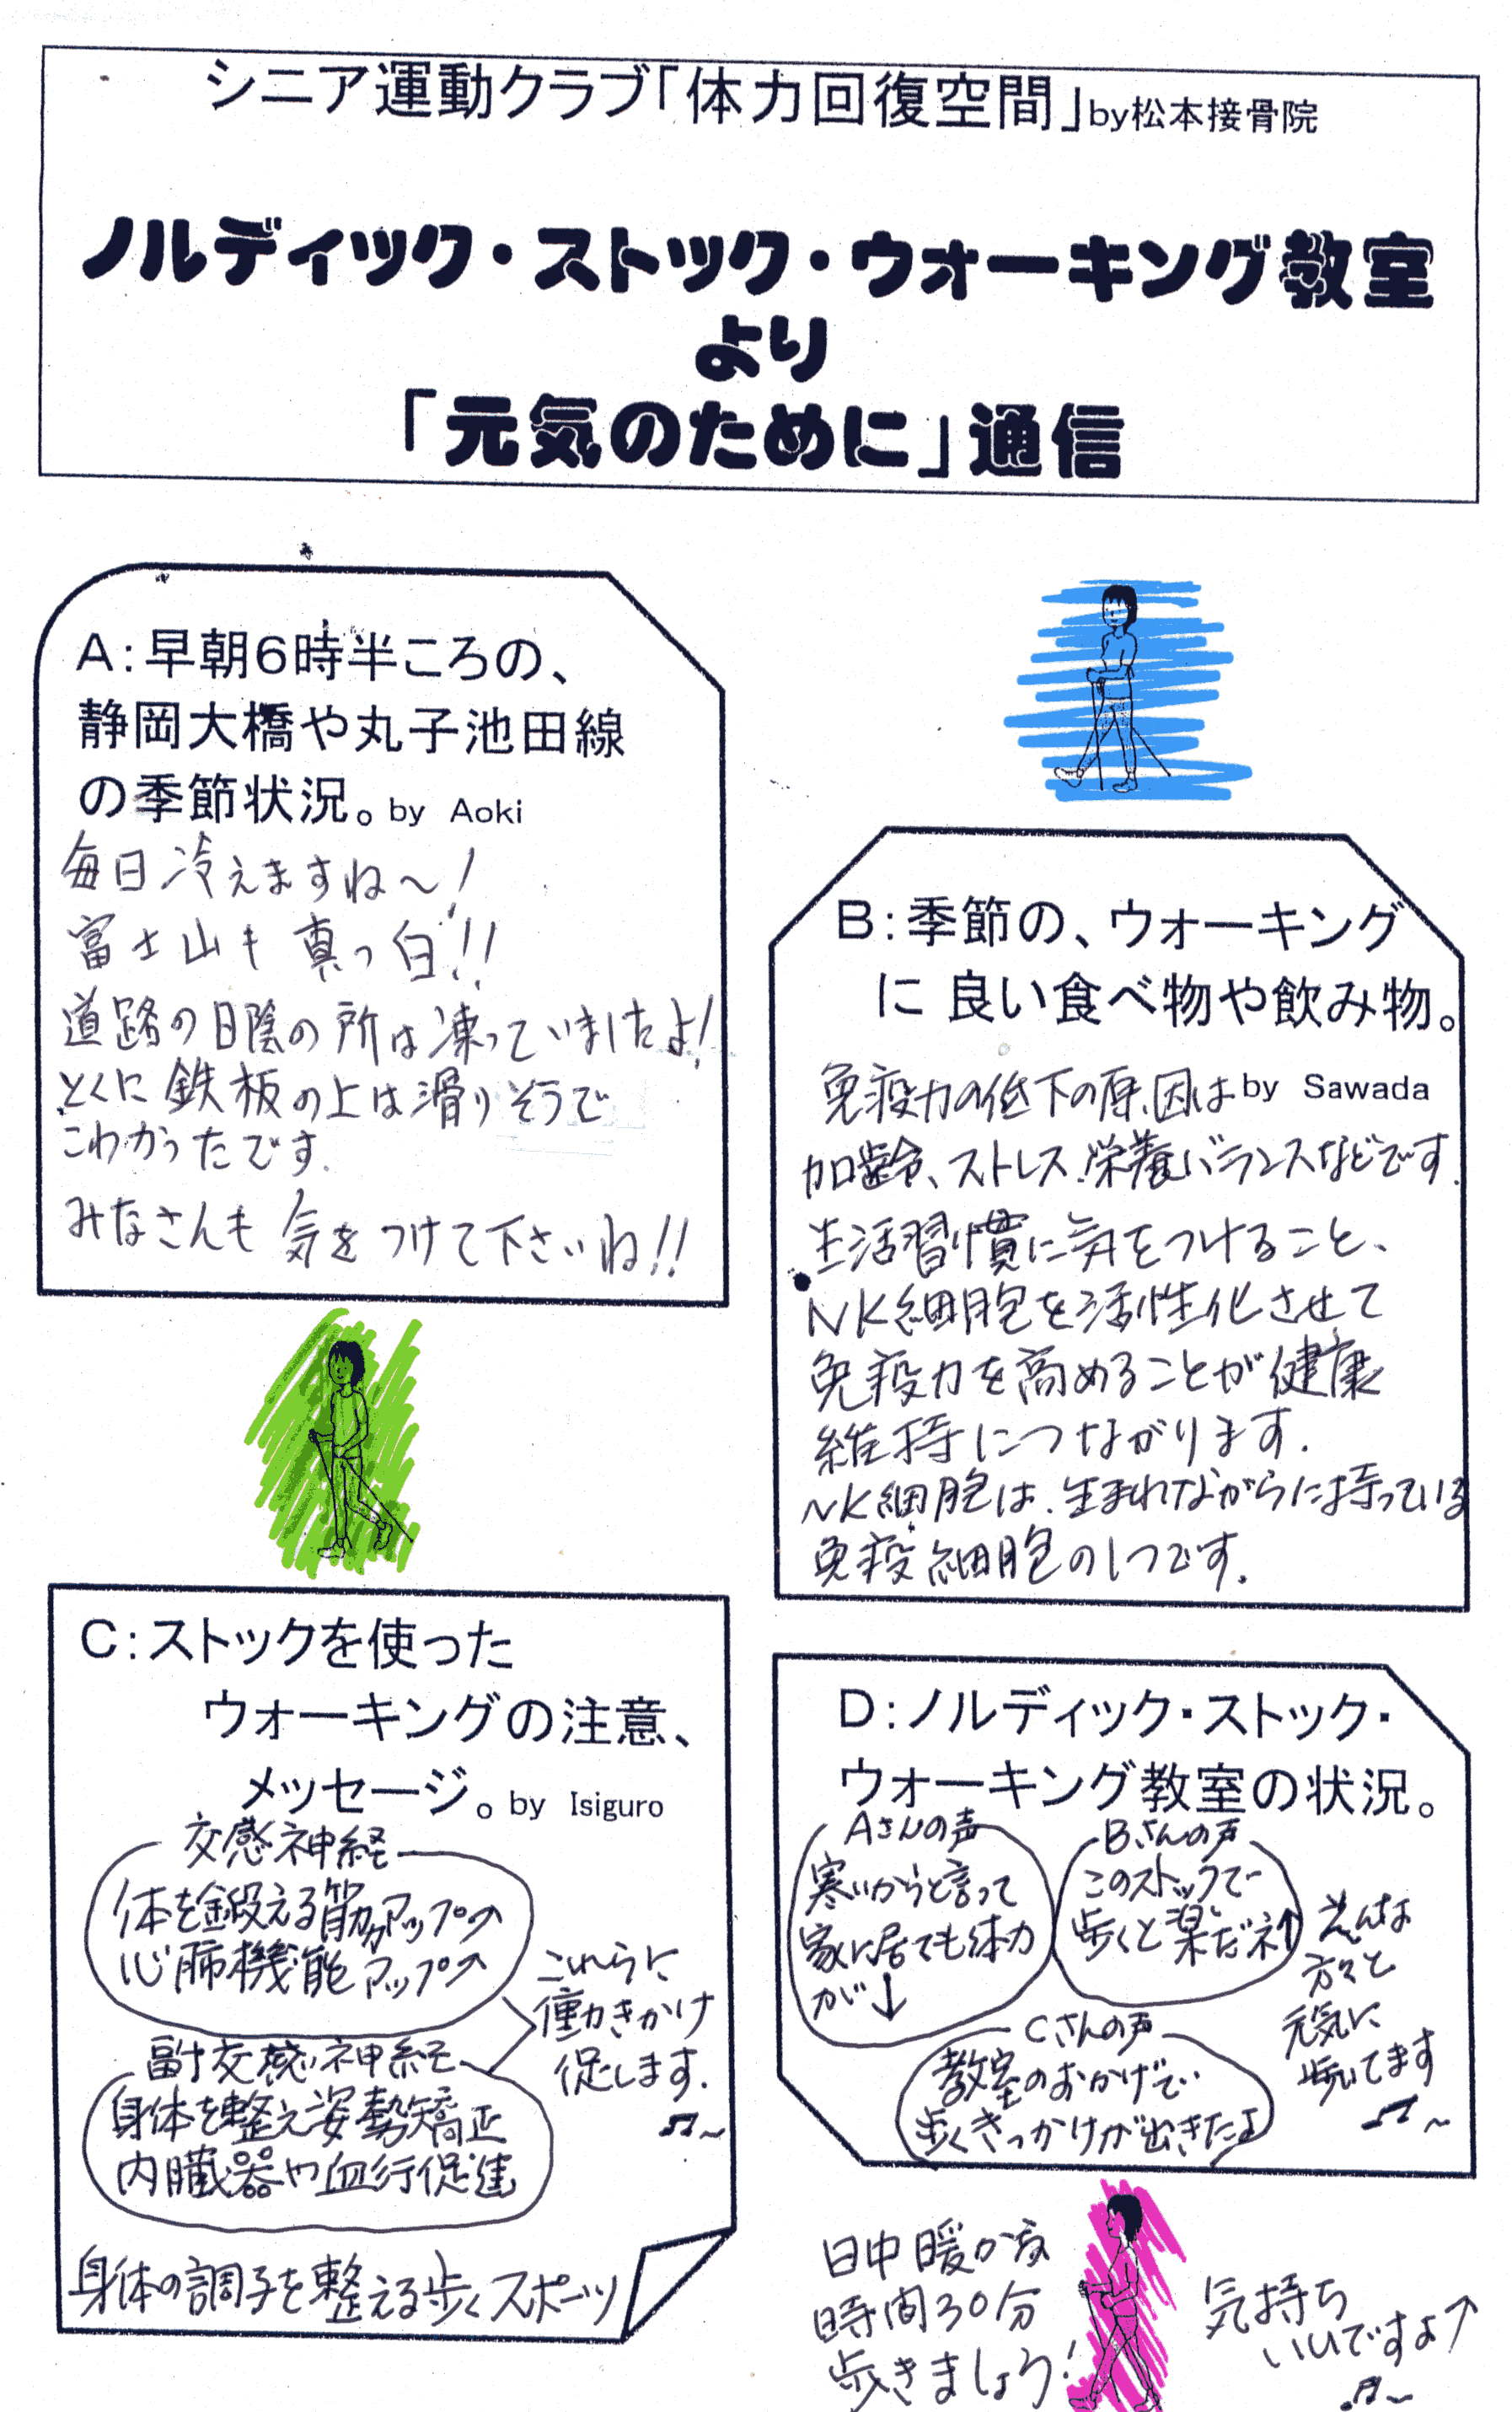 シニア運動クラブ「体力回復空間」by松本接骨院
ノルディック・ストック・ウォーキング教室
より
「元気のために」通信
A:早朝6時半ころの、
静岡大橋や丸子池田線
の季節状況。by Aoki
毎日冷えますね〜!
富士山も真っ白!!
道路の日陰の所は凍っていましたよ!
とくに鉄板の上は滑りそうで
こわかったです.
みなさんも気をつけて下さいね!!
B:季節の、ウォーキング
に良い食べ物や飲み物。
by Sawada
免疫力の低下の原因は
加齢、ストレス.栄養バランスなどです.
生活習慣に気をつけること、
NK細胞を活性化させて
免疫力を高めることが健康
維持につながります.
NK細胞は.生まれながらに持っている
免疫細胞の1つです.
C:ストックを使った
ウォーキングの注意、
メッセージ。by Isiguro
交感神経
体を鍛える筋力アップ↗
心肺機能アップ↗
副交感神経
身体を整え姿勢矯正
内臓器や血行促進
これらに
働きかけ
促します.
♫〜
身体の調子を整える歩くスポーツ
D:ノルディック・ストック・
ウォーキング教室の状況。
Aさんの声
寒いからと言って
家に居ても体力
が↓
Bさんの声
このストックで
歩くと楽だネ↑
Cさんの声
教室のおかげで
歩くきっかけが出きたよ
そんな
方々と
元気に
歩いてます
♫〜
日中暖かな
時間30分
歩きましょう!
気持ち
いいですよ↗
♫〜